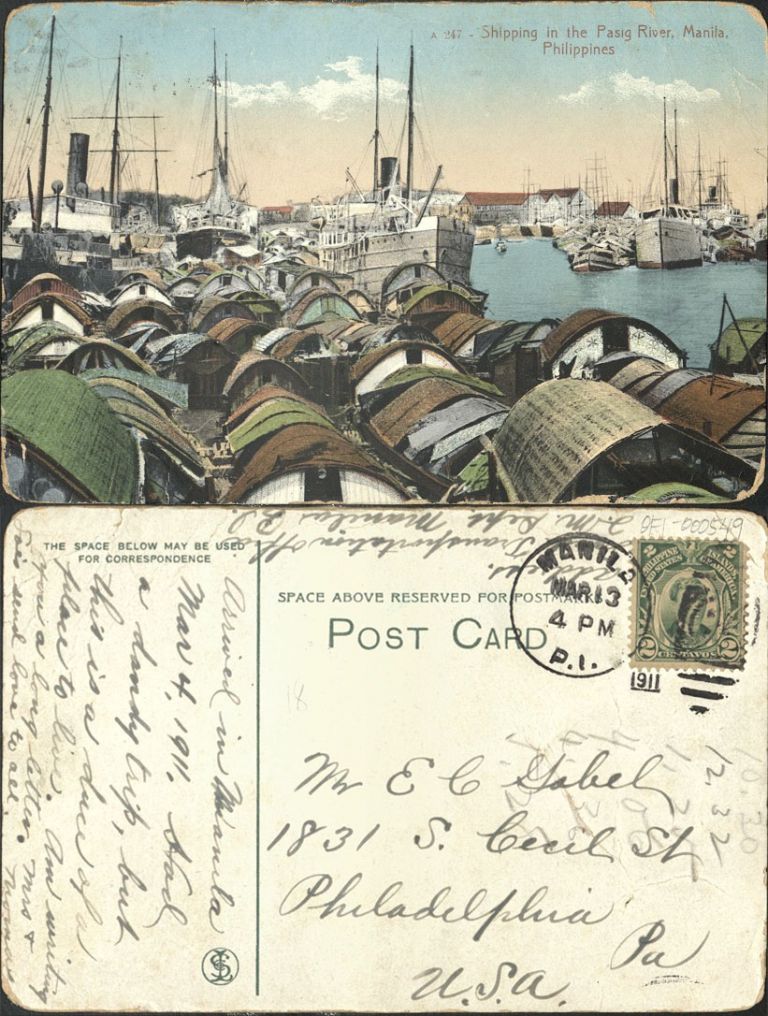 A 247 - Shipping in the Pasig River, Manila,
Philippines
THE SPACE BELOW MAY BE USED
FOR CORRESPONDENCE
Arrived in Manila
Mar 4, 1911. Had
a dandy trip, but
this is a duce of a
place to live. Am writing
you a long letter. Mrs &
send love to all.
Transportation office
Q.M. Dept. Manila P.I.
SPACE ABOVE RESERVED FOR POSTMARKS
POST CARD
MANILA
MAR 13
4 PM
P.I.
1911
PHILIPPINE ISLANDS
UNITED STATES
2 CENTAVOS 2
Mr E C Gabel
1831 S. Cecil St
Philadelphia
Pa
U.S.A.
12.32
10.30
18